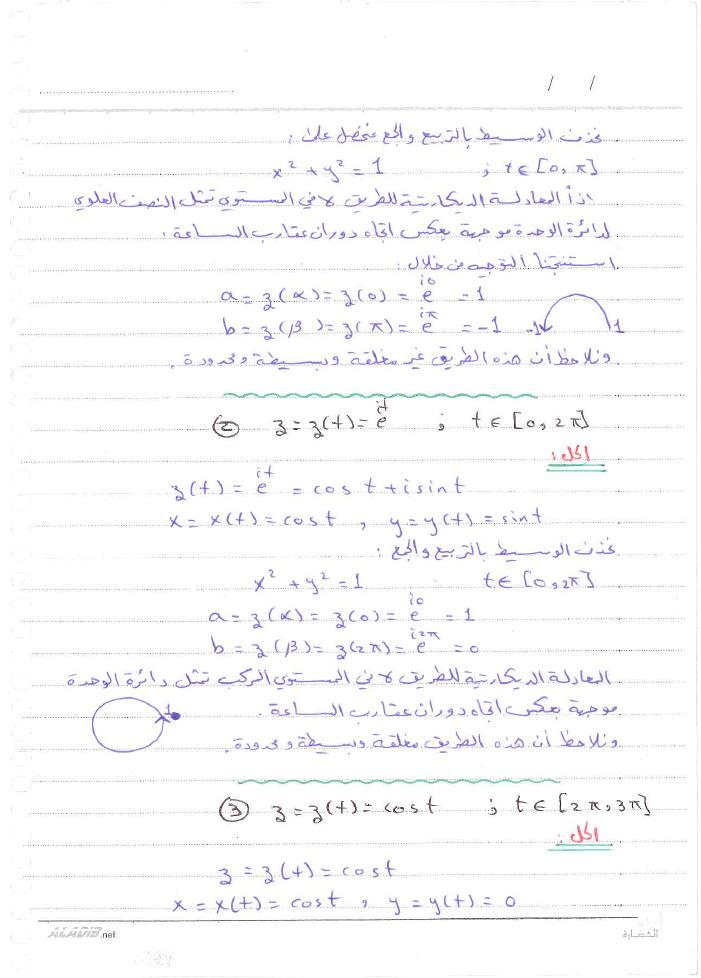 / /
نحذف الوسيط بالتربيع والجمع فنحصل على :
x² + y² = 1 ; t ∈ [0, π]
اذاً المعادلة الديكارتية للطريق γ في المستوي تمثل النصف العلوي
لدائرة الوحدة موجهة بعكس اتجاه دوران عقارب الساعة .
استنتجنا التوجيه من خلال :
a = z(α) = z(0) = e^{i0} = 1
b = z(β) = z(π) = e^{iπ} = -1 -1 1
ونلاحظ أن هذه الطريق غير مغلقة وبسيطة ومحدودة .
② z = z(t) = e^{it} ; t ∈ [0, 2π]
الحل :
z(t) = e^{it} = cos t + i sin t
x = x(t) = cos t , y = y(t) = sin t
نحذف الوسيط بالتربيع والجمع :
x² + y² = 1 t ∈ [0, 2π]
a = z(α) = z(0) = e^{i0} = 1
b = z(β) = z(2π) = e^{i2π} = 0
المعادلة الديكارتية للطريق γ في المستوي المركب تمثل دائرة الوحدة
موجهة بعكس اتجاه دوران عقارب الساعة . 1
ونلاحظ أن هذه الطريق مغلقة وبسيطة ومحدودة .
③ z = z(t) = cos t ; t ∈ [2π, 3π]
الحل :
z = z(t) = cos t
x = x(t) = cos t , y = y(t) = 0
ALADIB.net الحضارة